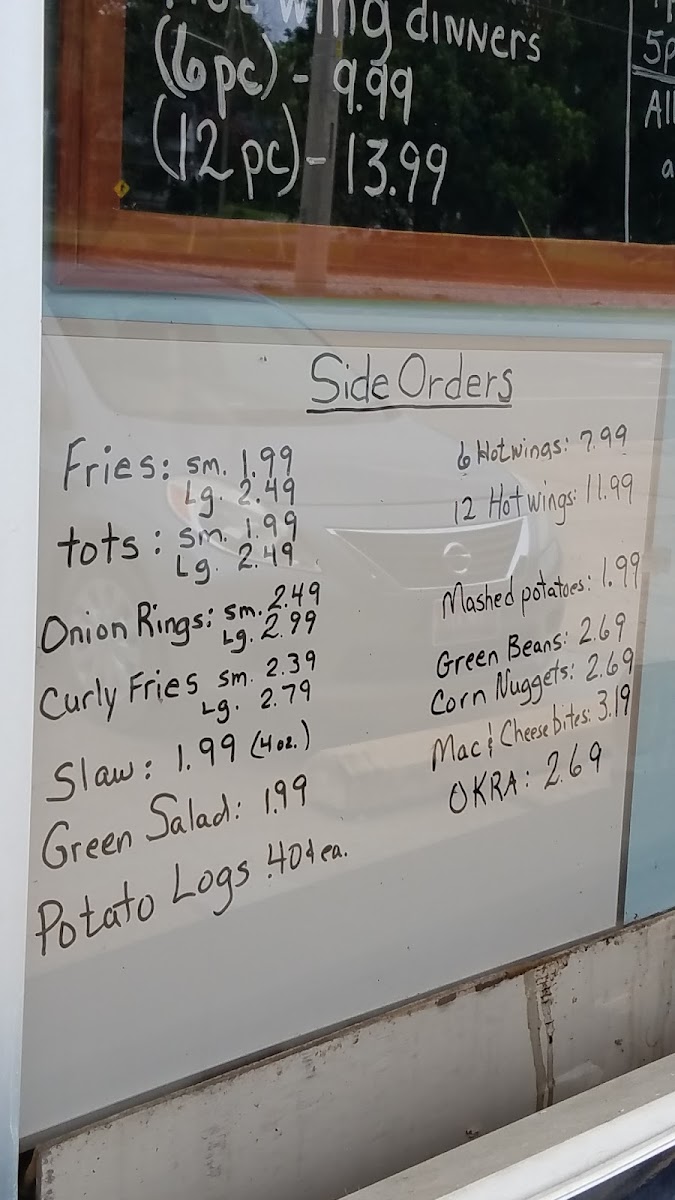 wing dinners
(6 pc) - 9.99
(12 pc) - 13.99
5p
All
a
Side Orders
Fries: sm. 1.99
Lg. 2.49
tots: sm. 1.99
Lg. 2.49
Onion Rings: sm. 2.49
Lg. 2.99
Curly Fries sm. 2.39
Lg. 2.79
Slaw: 1.99 (4 oz.)
Green Salad: 1.99
Potato Logs .40¢ ea.
6 Hotwings: 7.99
12 Hot wings: 11.99
Mashed potatoes: 1.99
Green Beans: 2.69
Corn Nuggets: 2.69
Mac & Cheese bites: 3.19
OKRA: 2.69